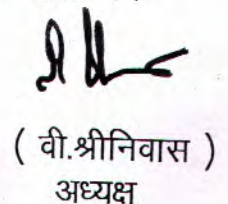 ( वी.श्रीनिवास )
अध्यक्ष